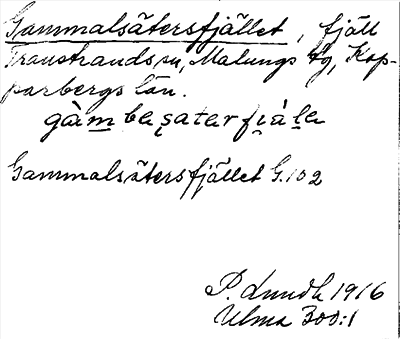 Gammalsätersfjället, fjäll
Transtrands sn, Malungs tg, Kop-
parbergs län.
gàm̲ba sa̱tar fi̯àl̲a
Gammalsätersfjället G.102
P. Lundh 1916
Ulma 303:1